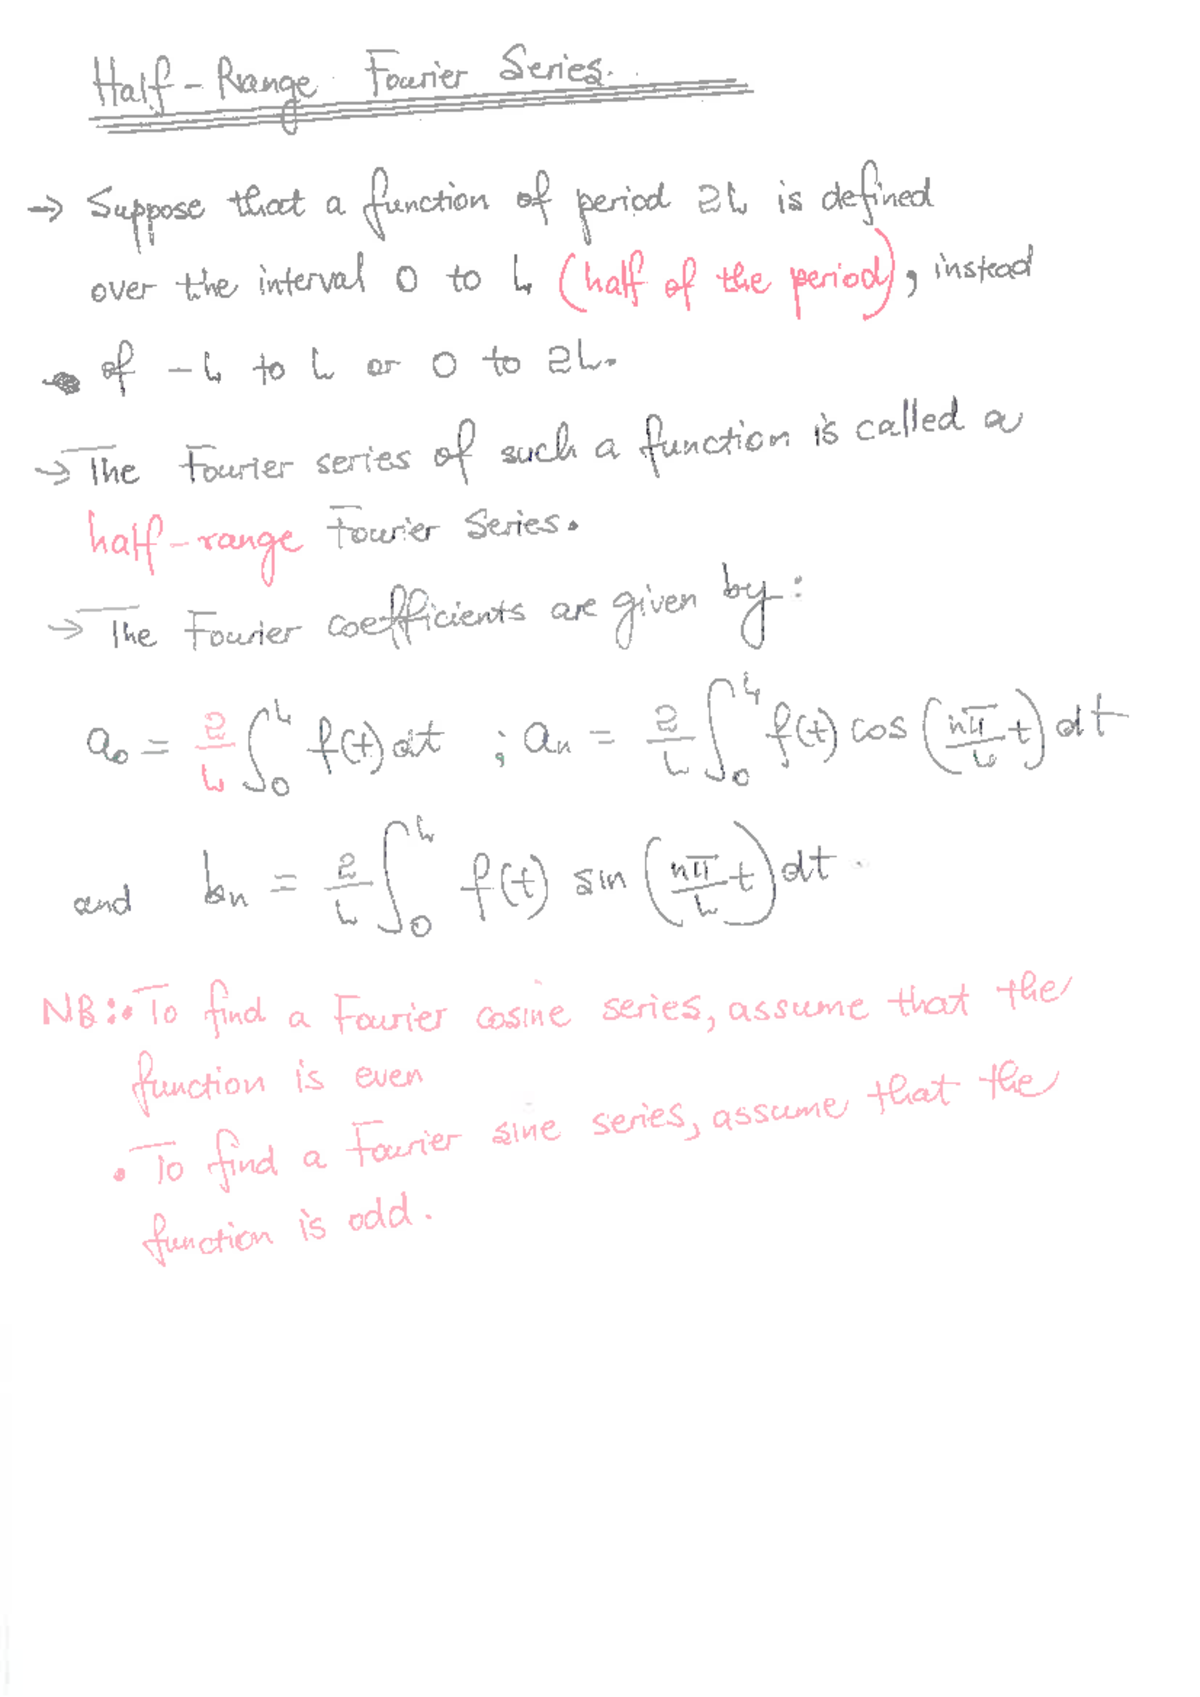 Half-Range Fourier Series.
→ Suppose that a function of period 2L is defined
over the interval 0 to L (half of the period), instead
of -L to L or 0 to 2L.
→ The Fourier series of such a function is called a
half-range Fourier Series.
→ The Fourier coefficients are given by:
a₀ = 2/L ∫₀ᴸ f(t) dt ; aₙ = 2/L ∫₀ᴸ f(t) cos (nπ/L t) dt
and bₙ = 2/L ∫₀ᴸ f(t) sin (nπ/L t) dt.
NB: • To find a Fourier cosine series, assume that the
function is even
• To find a Fourier sine series, assume that the
function is odd.